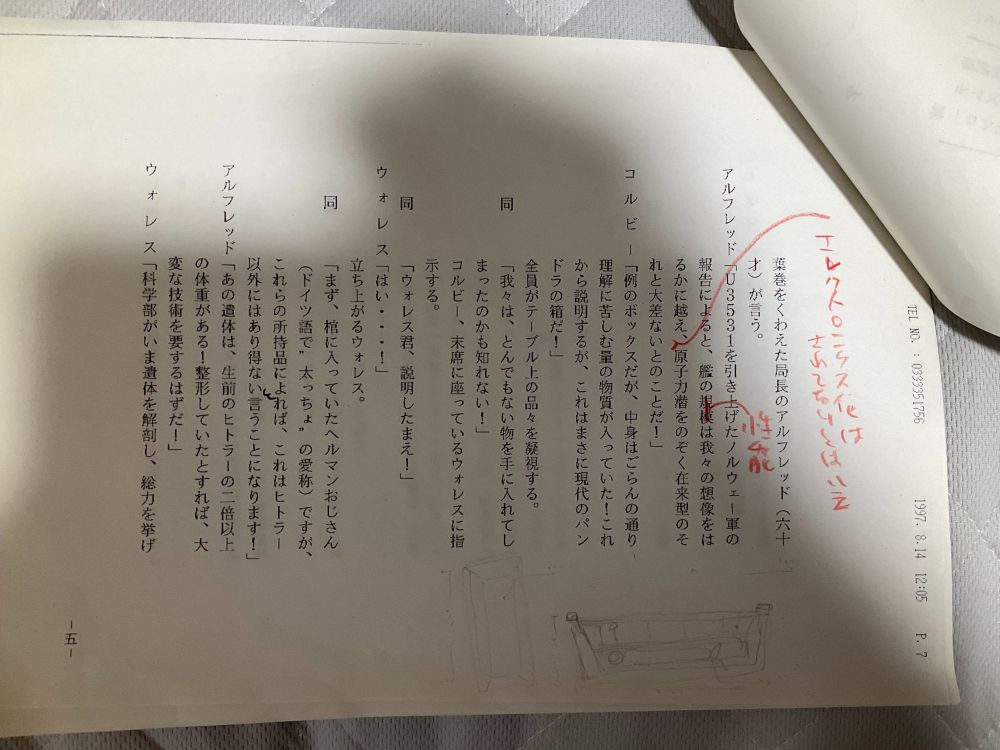 TEL NO. : 0333351756 1997. 8.14 12:05 P. 7
エレクトロニクス化は
されてないとはいえ
葉巻をくわえた局長のアルフレッド（六十
才）が言う。
アルフレッド「U3531を引き上げたノルウェー軍の
報告によると、艦の規模は我々の想像をは
性能
るかに越え、原子力潜をのぞく在来型のそ
れと大差ないとのことだ！」
コルビー「例のボックスだが、中身はごらんの通り
理解に苦しむ量の物質が入っていた！これ
から説明するが、これはまさに現代のパン
ドラの箱だ！」
全員がテーブル上の品々を凝視する。
同「我々は、とんでもない物を手に入れてし
まったのかも知れない！」
コルビー、末席に座っているウォレスに指
示する。
同「ウォレス君、説明したまえ！」
ウォレス「はい・・・！」
立ち上がるウォレス。
同「まず、棺に入っていたヘルマンおじさん
（ドイツ語で”太っちょ”の愛称）ですが、
これらの所持品によれば、これはヒトラー
以外にはあり得ない言うことになります！」
アルフレッド「あの遺体は、生前のヒトラーの二倍以上
の体重がある！整形していたとすれば、大
変な技術を要するはずだ！」
ウォレス「科学部がいま遺体を解剖し、総力を挙げ
－五－